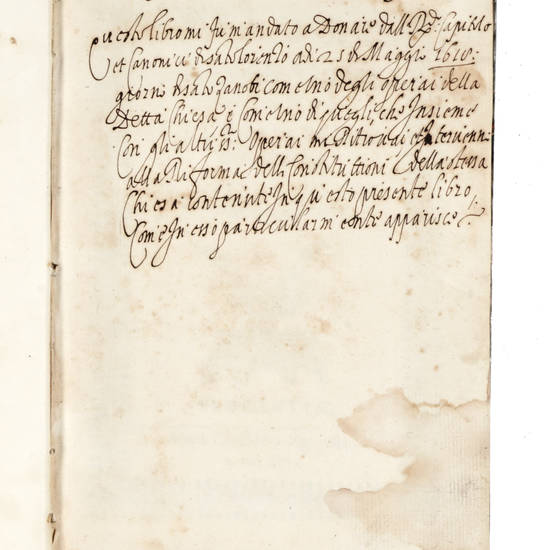 Questo libro mi fu mandato a Donare dall R.do Capitolo
et Canonici di San Lorenzo adi 25 di Maggio 1618:
giorno di San Zanobi come uno degli operai della
Detta Chiesa e Come uno di quegli, che Insieme
Con gli altri SS:ri Operai mi Ritrovai et Intervenni
alla Riforma delli Constituttioni della stessa
Chiesa contenute In questo presente libro,
Come In esso particularmente apparisce